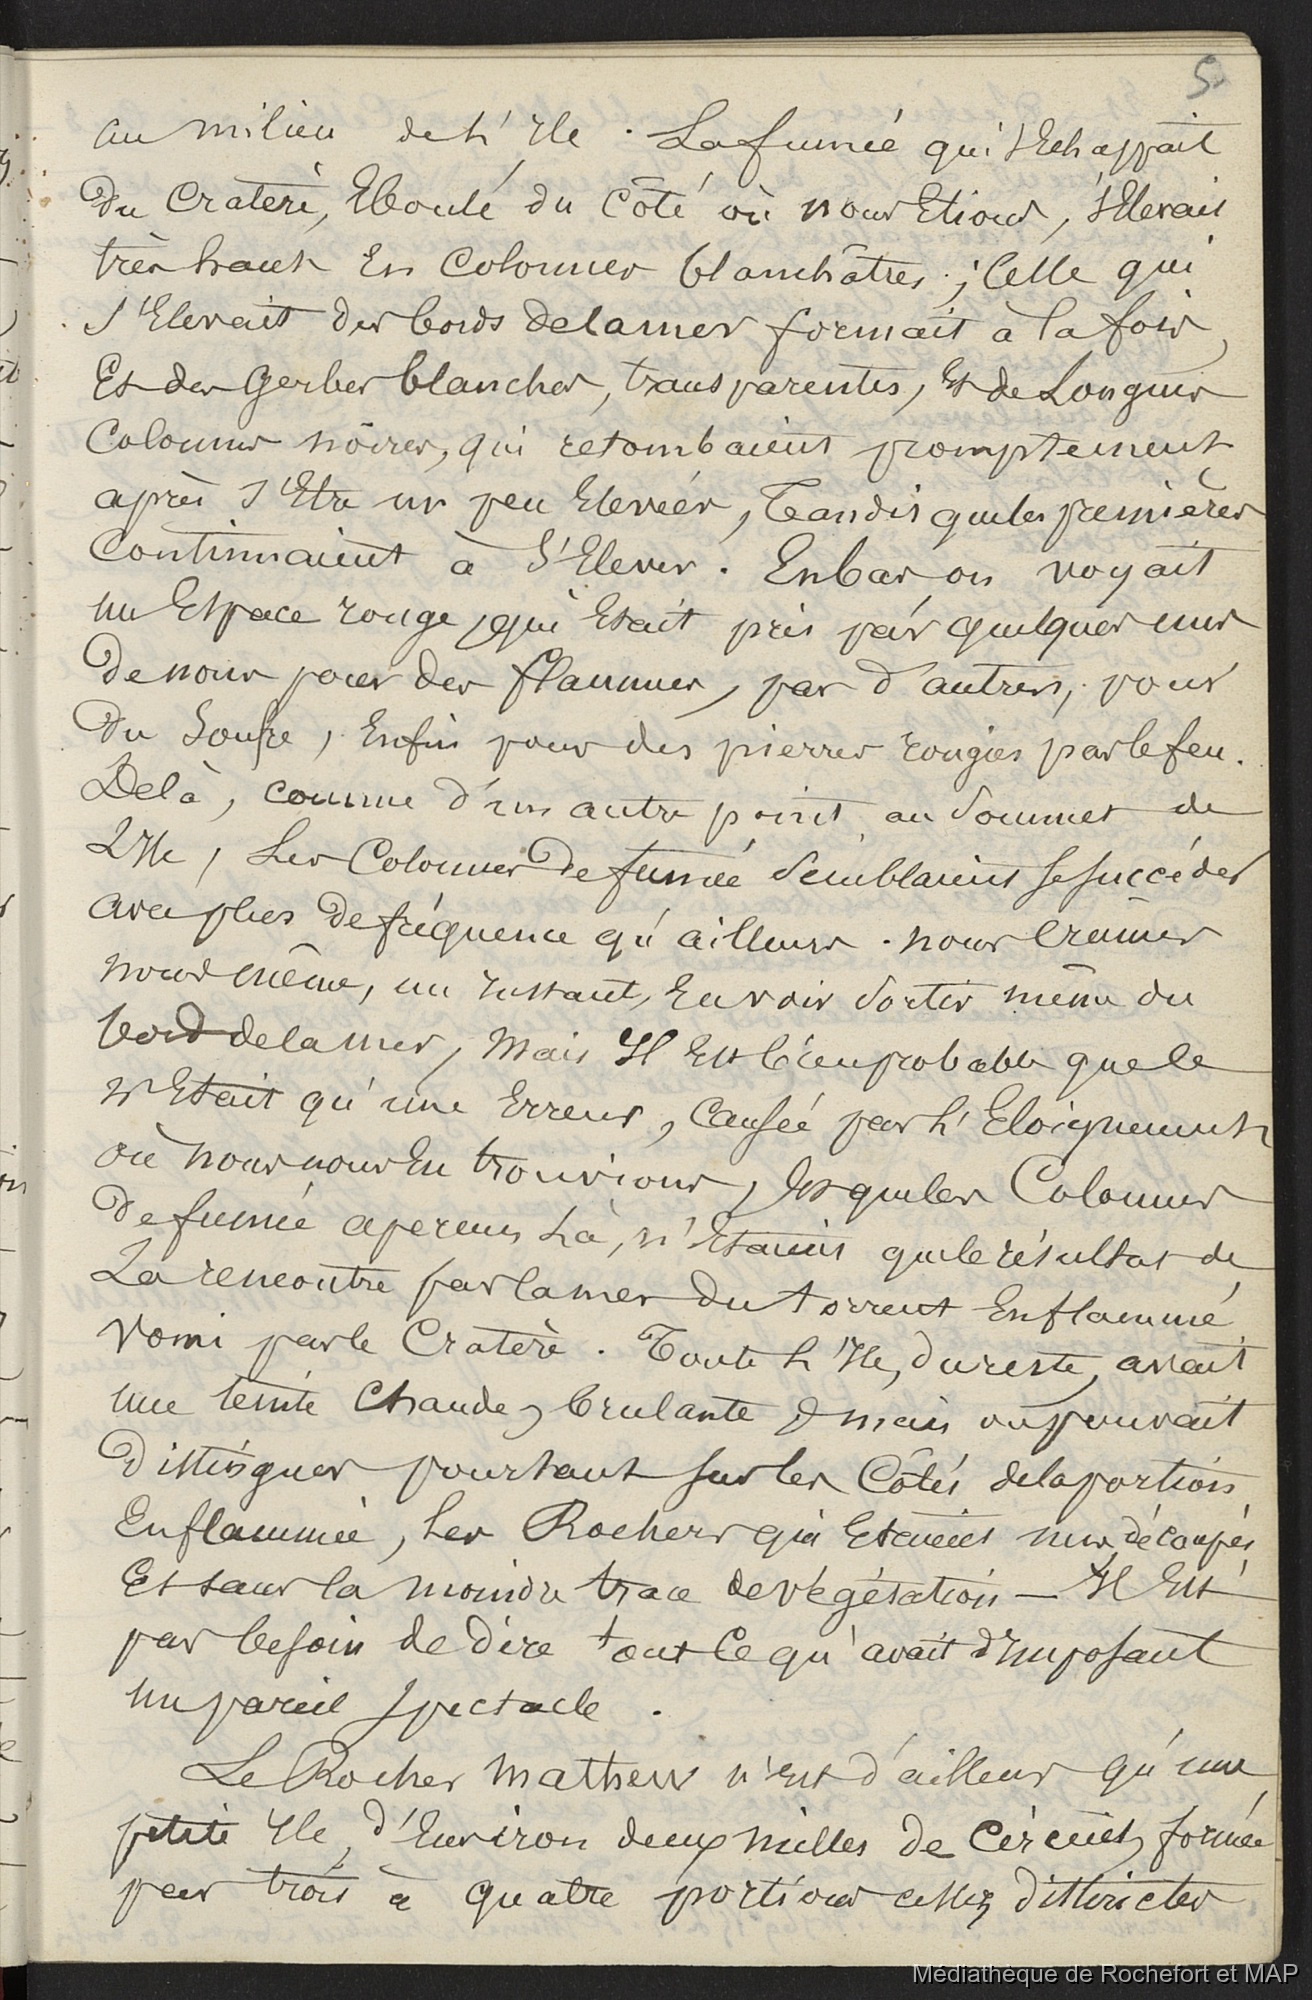 5
au milieu de l'Ile. La fumée qui s'Echappait
Du Cratère, Eboulé du Côté où nous Etions, s'Elevait
très haut En Colonnes blanchâtres ; Celle qui
s'Elevait des bords de la mer formait à la fois,
Et des Gerbes blanches, transparentes, Et de Longues
Colonnes noires, qui retombaient promptement
après s'Etre un peu Elevées, Tandis que les premières
Continuaient à s'Elever. En bas, on voyait
un Espace rouge, qui Etait pris par quelques uns
De nous pour des flammes, par d'autres, pour
Du Soufre, Enfin pour des pierres rougies par le feu.
De là, comme d'un autre point au Sommet de
L'Ile, Les Colonnes De fumée Semblaient se succéder
avec plus De fréquence qu'ailleurs. nous Crûmes
nous même, un Instant, En voir Sortir même du
bord de la mer, Mais Il Est bien probable que Ce
n'Etait qu'une Erreur, Causée par L'Eloignement
où nous nous En trouvions, Et que les Colonnes
De fumée aperçues Là, n'Etaient que le résultat de
La rencontre par la mer Du torrent Enflammé
Vomi par le Cratère. Toute L'Ile, du reste, avait
une teinte Chaude, brulante, mais on pouvait
Distinguer pourtant sur les Côtés de la portion
Enflammée, Les Rochers qui Etaient nus, découpés
Et sans la moindre trace de végétation — Il Est
pas besoin de dire tout Ce qu'avait d'Imposant
un pareil spectacle.
Le Rocher Mathew n'Est d'ailleurs qu'une
petite Ile, d'Environ deux milles de Circuit, formée
par trois à quatre portions assez distinctes
Médiathèque de Rochefort et MAP